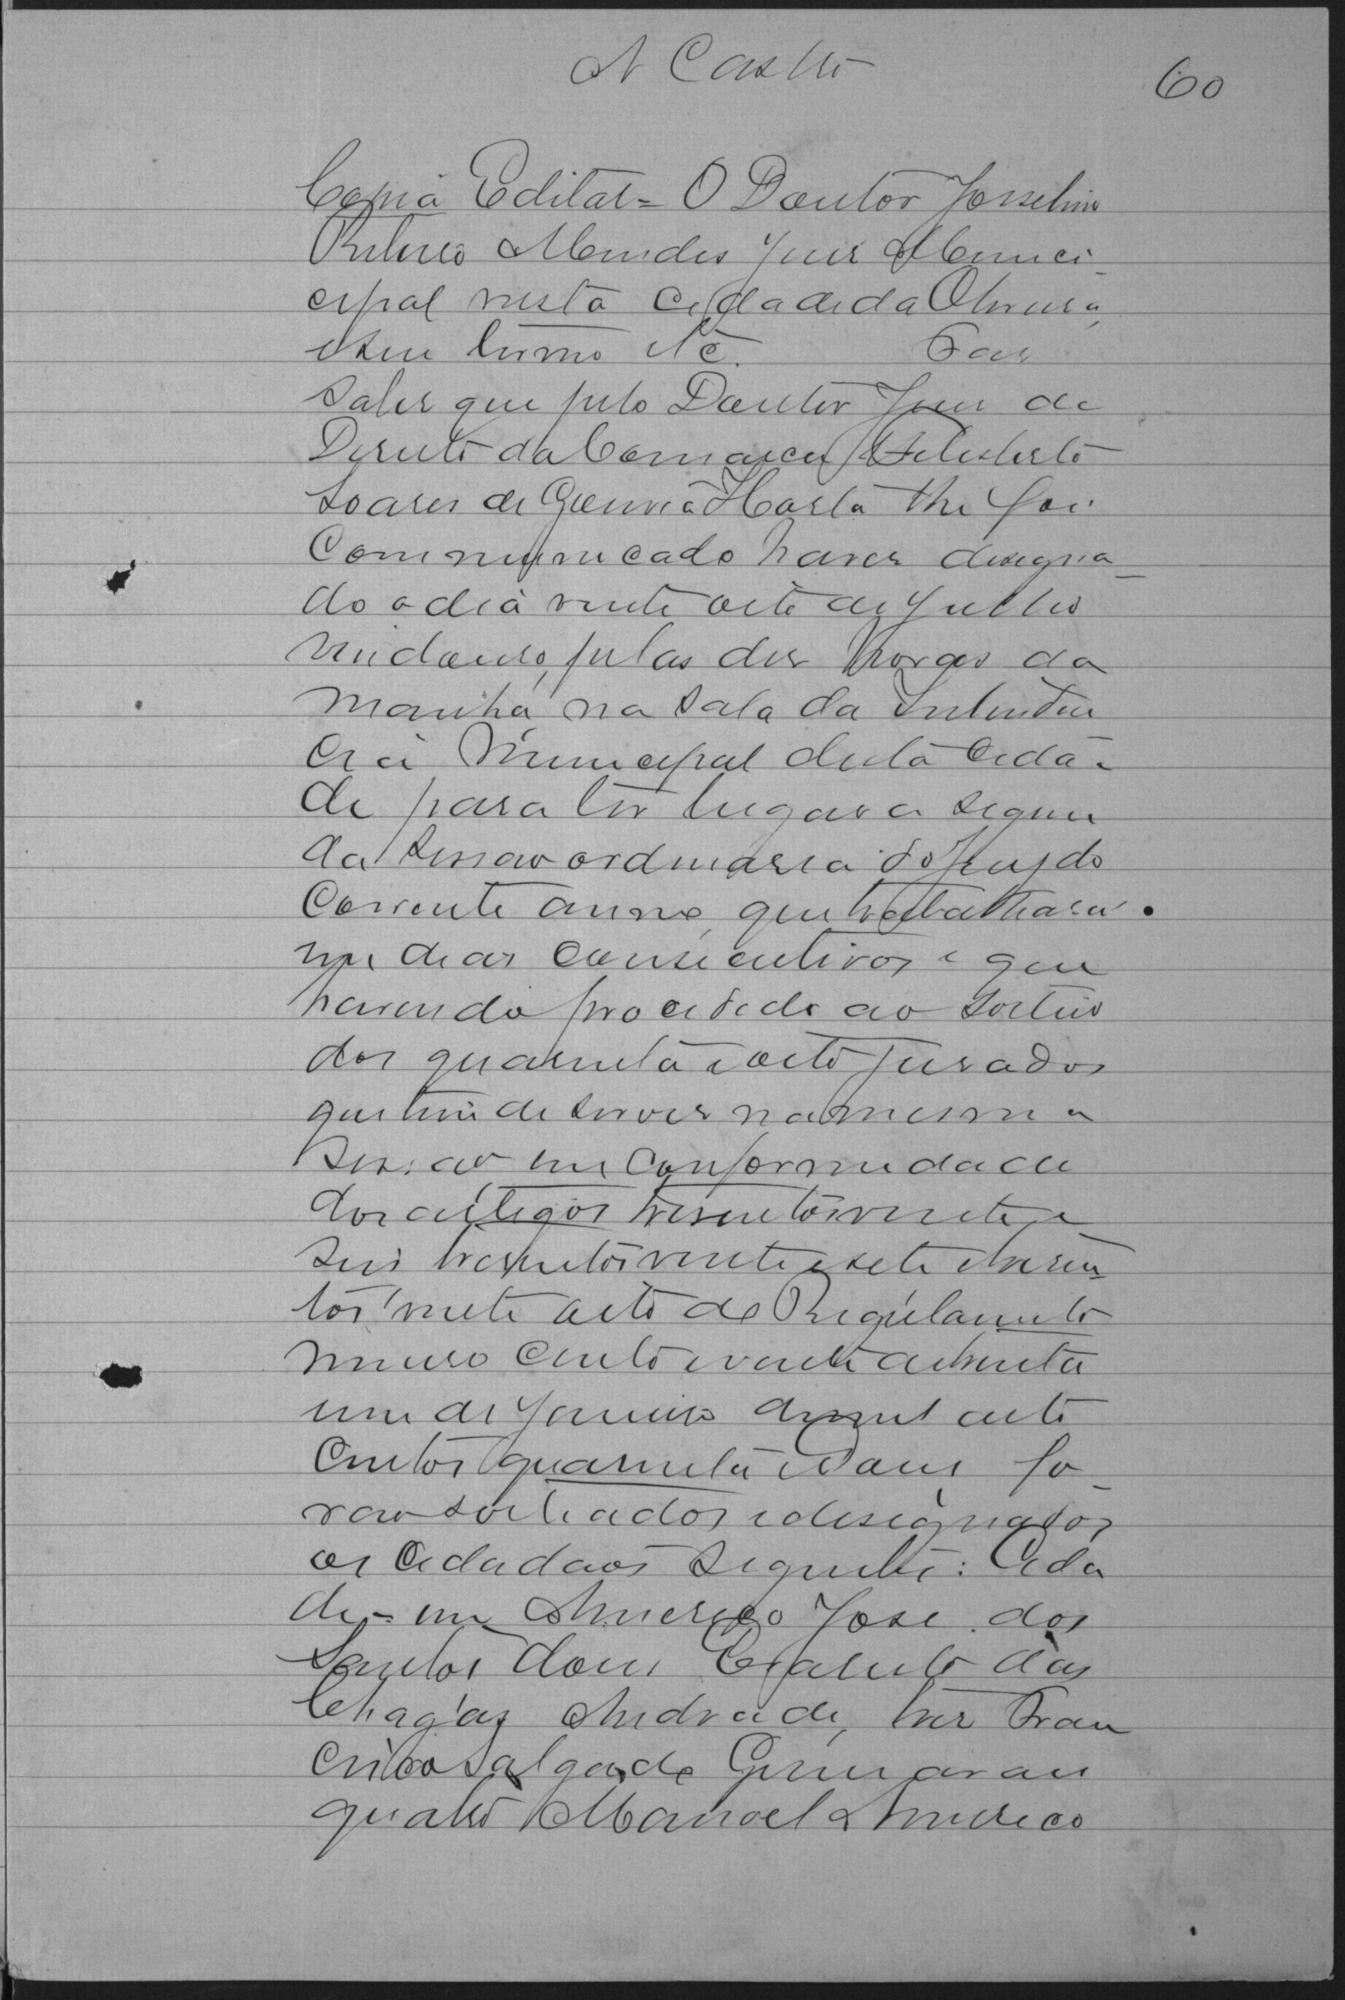 A Castro
60
Copia Edital = O Doutor Josselino
Ribeiro Mendes Juis Munici-
cipal nesta cidade da Oliveira,
e seu termo etc. Fas
saber que pelo Doutor Juis de
Dereito da Comarca Felisberto
Soares de Gouvea Horta the foi
Communicado haver designa-
do o dia vinte oito de Julho
vindouro, pelas des horas da
manhã na sala da Intenden
cia Municipal desta cida-
de para ter lugar a segun
da sessao ordinaria do Jury do
Corrente anno, que trabalhara
em dias consecutivos e que
havendo procedido ao sorteio
dos quarenta e oito jurados
que tem de servir na mesma
sessao em conformidade
dos artigos tresentos vinte e
seis tresentos vinte e sete e tresen
tos vinte oito do Regulamento
numero cento e vinte de trinta
um de Janeiro de mil oito
centos quarenta e dous fo-
rao sorteados e designados
os cidadaos seguintes: Cida
de = um Americo Jose dos
Santos dous Candido das
Chagas Andrade, tres Fran
cisco Salgado Guimaraes
quatro Manoel Americo